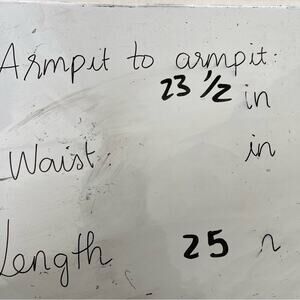 Armpit to armpit:
23 1/2 in
Waist in
Length 25 n